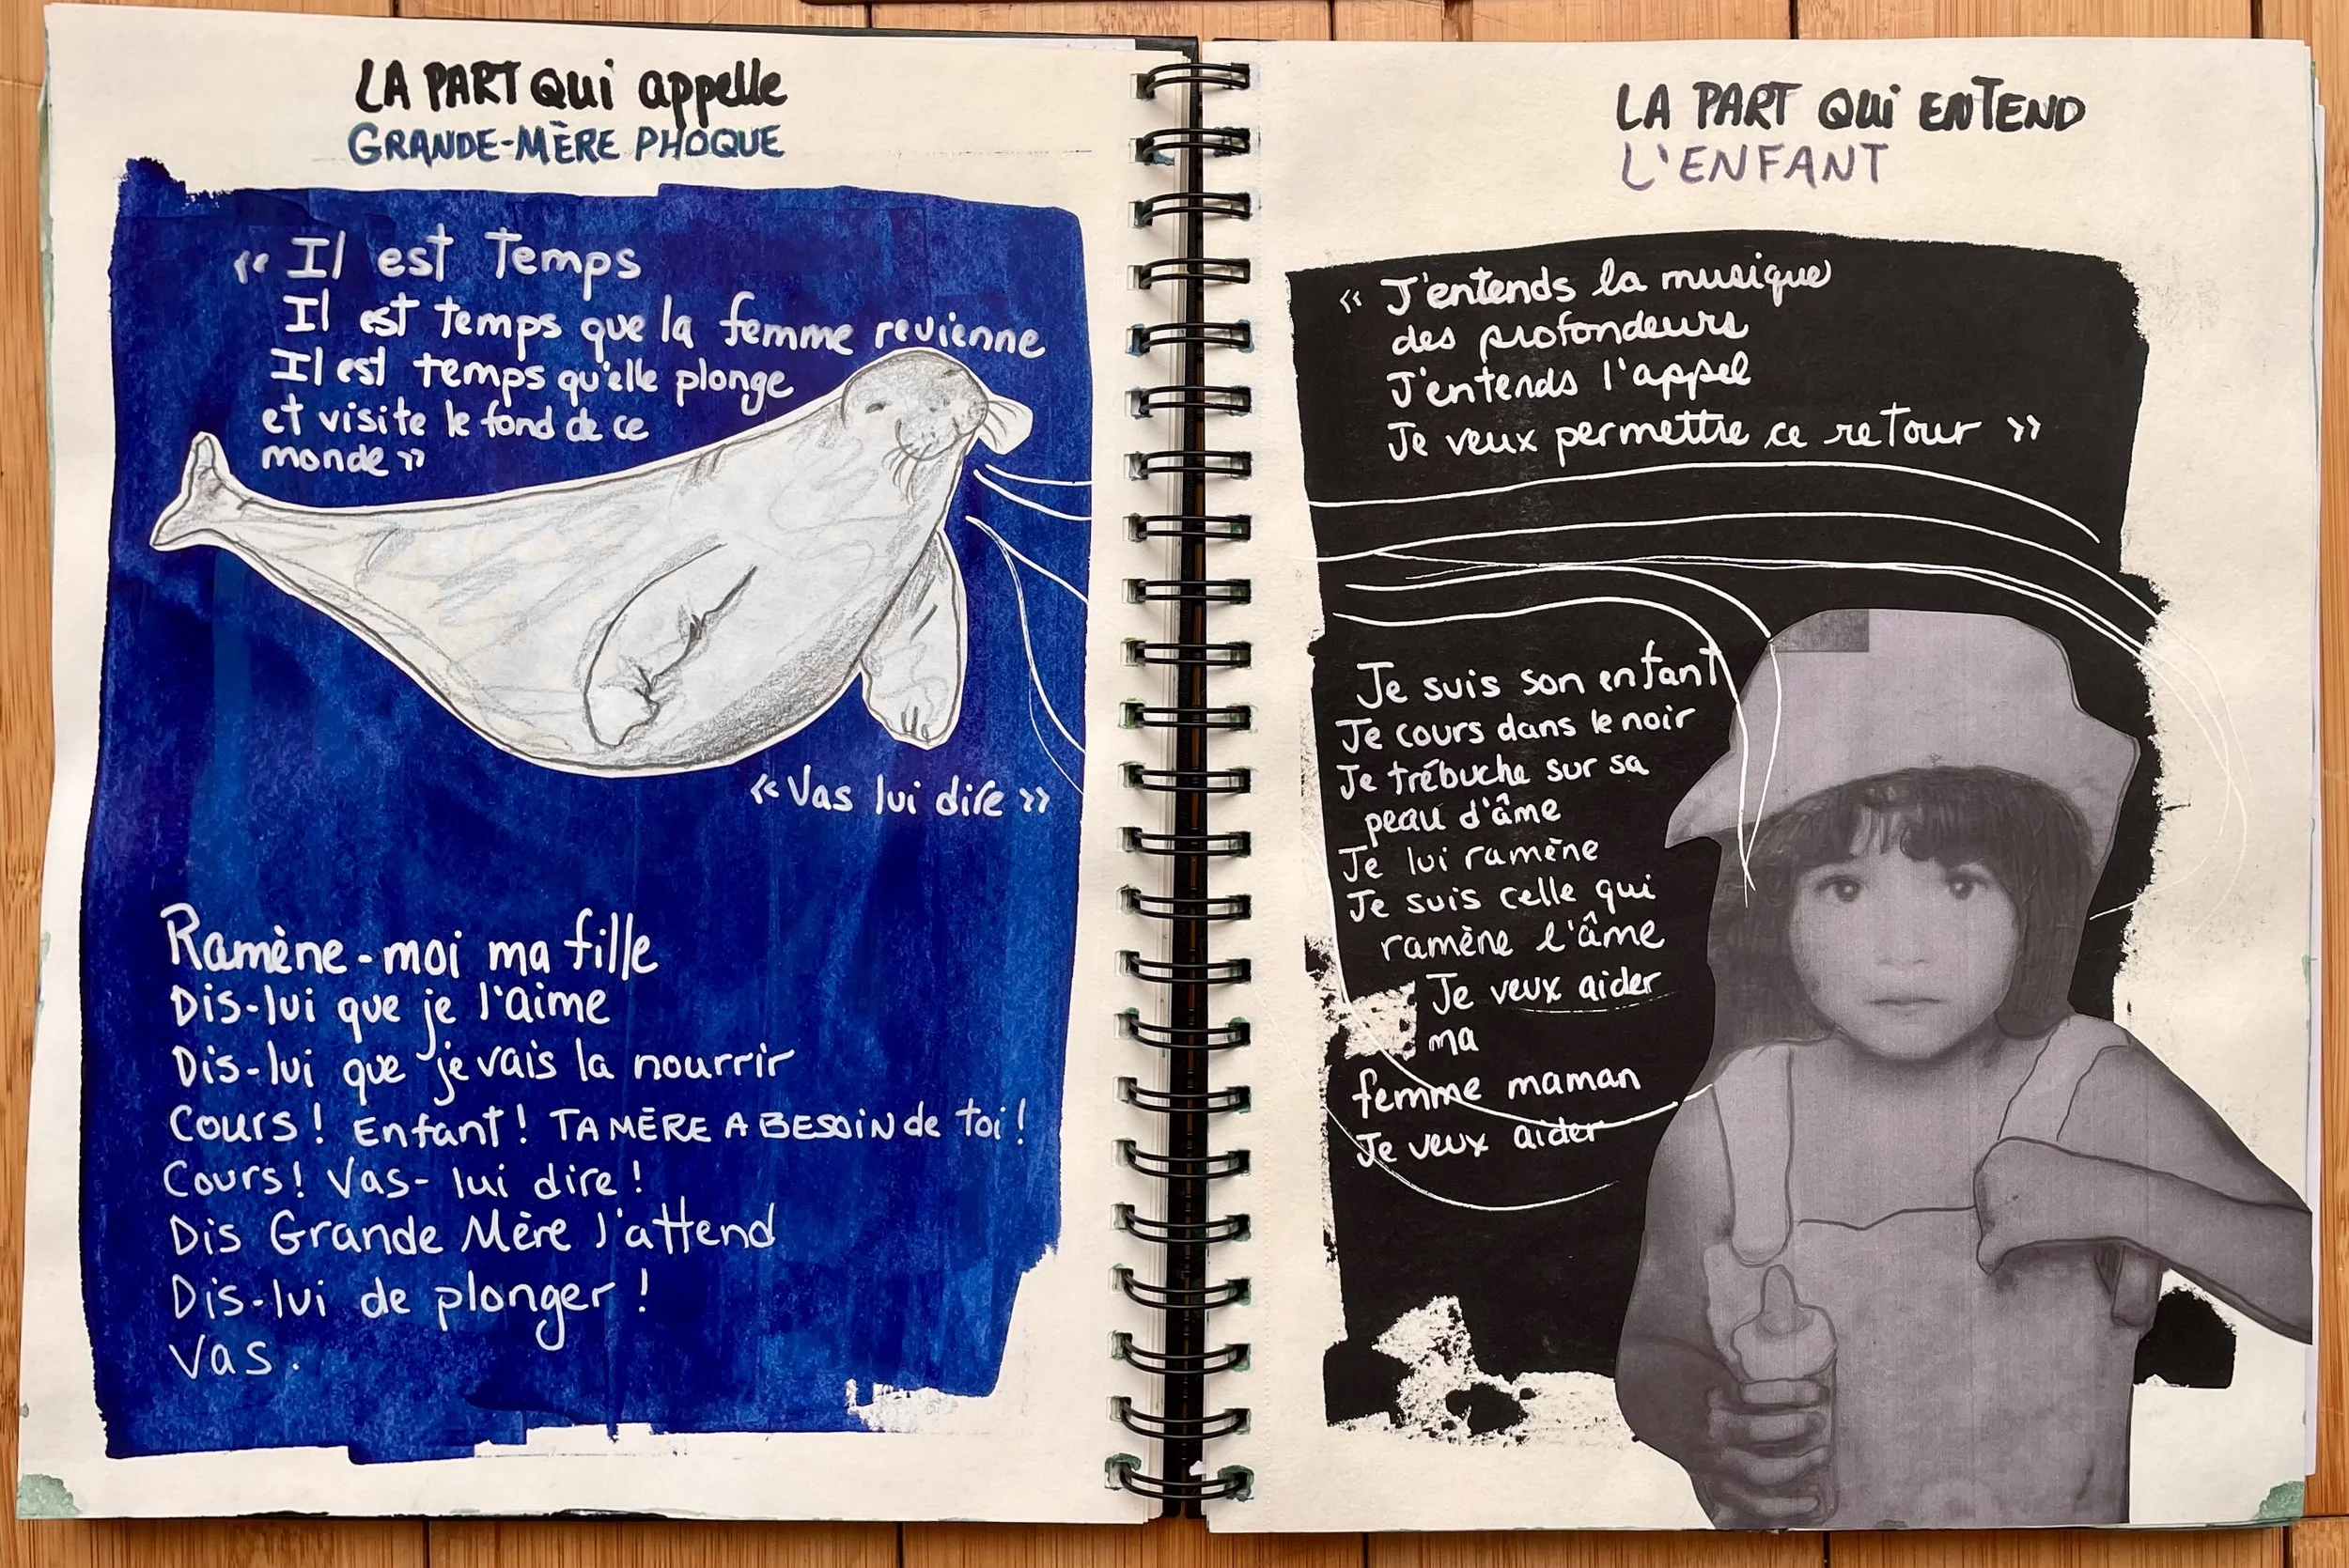 LA PART Qui appelle
GRANDE-MÈRE PHOQUE
« Il est Temps
Il est temps que la femme revienne
Il est temps qu'elle plonge
et visite le fond de ce
monde »
« Vas lui dire »
Ramène-moi ma fille
Dis-lui que je l'aime
Dis-lui que je vais la nourrir
Cours ! Enfant ! TA MÈRE A BESOiN de toi !
Cours ! Vas-lui dire !
Dis Grande Mère l'attend
Dis-lui de plonger !
Vas.
LA PART Qui ENTEND
L'ENFANT
« J'entends la musique
des profondeurs
J'entends l'appel
Je veux permettre ce retour »
Je suis son enfant
Je cours dans le noir
Je trébuche sur sa
peau d'âme
Je lui ramène
Je suis celle qui
ramène l'âme
Je veux aider
ma
femme maman
Je veux aider